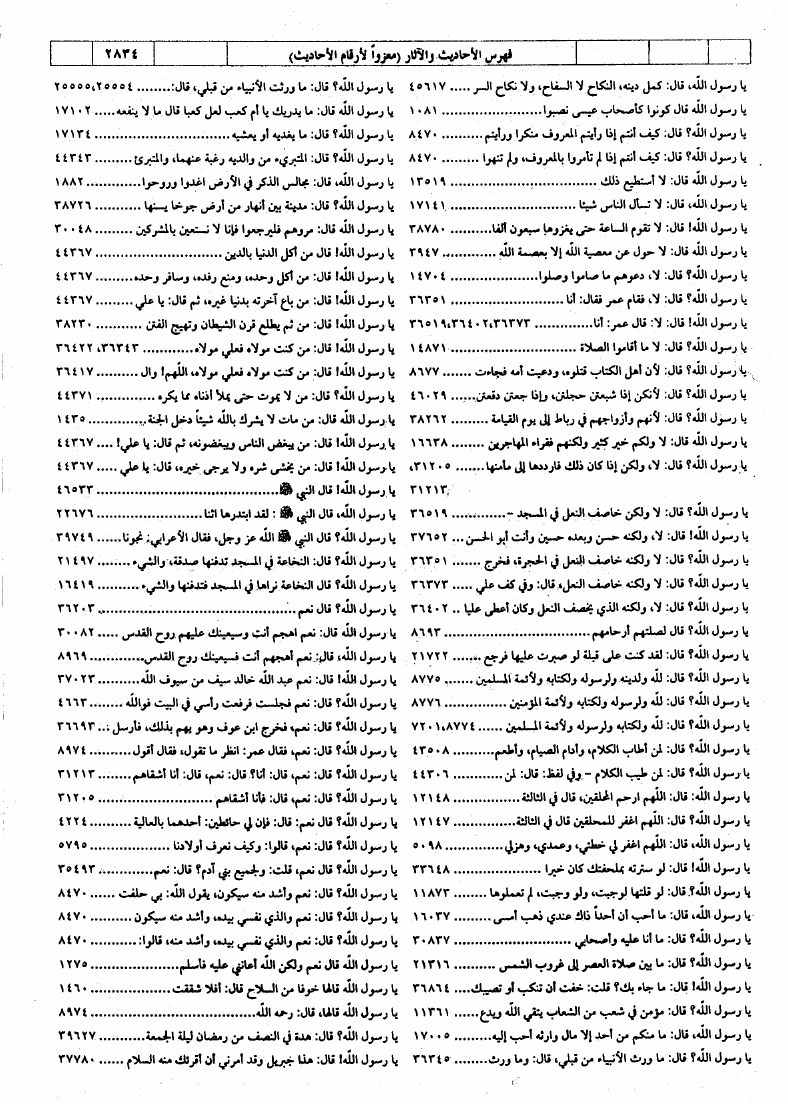 فهرس الأحاديث والآثار (معزواً لأرقام الأحاديث)
٢٨٣٤
يا رسول الله، قال: كمل دينه، النكاح لا السفاح، ولا نكاح السر ..... ٤٥٦١٧
يا رسول الله قال كونوا كأصحاب عيسى نصبوا ..... ١٠٨١
يا رسول الله؟ قال: كيف أنتم إذا رأيتم المعروف منكرا ورأيتم ..... ٨٤٧٠
يا رسول الله؟ قال: كيف أنتم إذا لم تأمروا بالمعروف، ولم تنهوا ..... ٨٤٧٠
يا رسول الله قال: لا أستطيع ذلك ..... ١٣٥١٩
يا رسول الله قال: لا تسأل الناس شيئا ..... ١٧١٤١
يا رسول الله؟ قال: لا تقوم الساعة حتى يغزوها سبعون ألفا ..... ٣٨٧٨٠
يا رسول الله قال: لا حول عن معصية الله إلا بعصمة الله ..... ٣٩٤٧
يا رسول الله؟ قال: لا، دعوهم ما صاموا وصلوا ..... ١٤٧٠٤
يا رسول الله؟ قال: لا، فقام عمر فقال: أنا ..... ٣٦٣٥١
يا رسول الله! قال: لا: قال عمر: أنا ..... ٣٦٥١٩،٣٦٤٠٢،٣٦٣٧٣
يا رسول الله؟ قال: لا ما أقاموا الصلاة ..... ١٤٨٧١
يا رسول الله؟ قال: لأن أهل الكتاب قتلوه، ودعيت أمه فجاءت ..... ٨٦٧٧
يا رسول الله؟ قال: لأنكن إذا شبعتن حجلتن، وإذا جعتن دقعتن ..... ٤٦٠٢٩
يا رسول الله؟ قال: لأنهم وأزواجهم في رباط إلى يوم القيامة ..... ٣٨٢٦٢
يا رسول الله! قال: لا ولكم خير كثير ولكنهم فقراء المهاجرين ..... ١٦٦٣٨
يا رسول الله؟ قال: لا، ولكن إذا كان ذلك فارددها إلى مأمنها ..... ٣١٢٠٥،
٣١٢١٣
يا رسول الله؟ قال: لا ولكن خاصف النعل في المسجد - ..... ٣٦٥١٩
يا رسول الله! قال: لا، ولكنه حسن وبعده حسين وأنت أبو الحسن ... ٣٧٦٥٢
يا رسول الله؟ قال: لا ولكنه خاصف النعل في الحجرة، فخرج ..... ٣٦٣٥١
يا رسول الله! قال: لا ولكنه خاصف النعل، قال: وفي كف علي ..... ٣٦٣٧٣
يا رسول الله؟ قال: لا، ولكنه الذي يخصف النعل وكان أعطى عليا .. ٣٦٤٠٢
يا رسول الله؟ قال لصلتهم أرحامهم ..... ٨٦٩٣
يا رسول الله؟ قال: لقد كنت على قبلة لو صبرت عليها فرجع ..... ٢١٧٢٢
يا رسول الله؟ قال: لله ولدينه ولرسوله ولكتابه ولأئمة المسلمين ..... ٨٧٧٥
يا رسول الله؟ قال: لله ولرسوله ولكتابه ولأئمة المؤمنين ..... ٨٧٧٦
يا رسول الله؟ قال: لله ولكتابه ولرسوله ولأئمة المسلمين ..... ٧٢٠١،٨٧٧٤
يا رسول الله؟ قال: لمن أطاب الكلام، وأدام الصيام، وأطعم ..... ٤٣٥٠٨
يا رسول الله؟ قال: لمن طيب الكلام - وفي لفظ: قال: لمن ..... ٤٤٣٠٦
يا رسول الله: قال: اللهم ارحم المحلقين، قال في الثالثة ..... ١٢١٤٨
يا رسول الله؟ قال: اللهم اغفر للمحلقين قال في الثالثة ..... ١٢١٤٧
يا رسول الله، قال: اللهم اغفر لي خطئي، وعمدي، وهزلي ..... ٥٠٩٨
يا رسول الله! قال: لو سترته بملحفتك كان خيرا ..... ٣٣٦٤٨
يا رسول الله؟ قال: لو قلتها لوجبت، ولو وجبت، لم تعملوها ..... ١١٨٧٣
يا رسول الله، قال: ما أحب أن أحداً ذاك عندي ذهب أمسى ..... ١٦٠٣٧
يا رسول الله؟ قال: ما أنا عليه وأصحابي ..... ٣٠٨٣٧
يا رسول الله! قال: ما بين صلاة العصر إلى غروب الشمس ..... ٢١٣١٦
يا رسول الله! قال: ما جاء بك؟ قلت: خفت أن تنكب أو تصيبك ..... ٣٦٨٦٤
يا رسول الله؟ قال: مؤمن في شعب من الشعاب يتقي الله ويدع ..... ١١٣٦١
يا رسول الله، قال: ما منكم من أحد إلا مال وارثه أحب إليه ..... ١٧٠٠٥
يا رسول الله؟ قال: ما ورث الأنبياء من قبلي، قال: وما ورث ..... ٣٦٣٤٥
يا رسول الله؟ قال: ما ورثت الأنبياء من قبلي، قال: ..... ٢٥٥٥٥،٢٥٥٥٤
يا رسول الله، قال: ما يدريك يا أم كعب لعل كعبا قال ما لا ينفعه ..... ١٧١٠٢
يا رسول الله؟ قال: ما يغديه أو يعشيه ..... ١٧١٣٤
يا رسول الله؟ قال: المتبريء من والديه رغبة عنهما، والمتبرئ ..... ٤٤٣٤٣
يا رسول الله، قال: مجالس الذكر في الأرض اغدوا وروحوا ..... ١٨٨٢
يا رسول الله؟ قال: مدينة بين أنهار من أرض جوخا يسنها ..... ٣٨٧٢٦
يا رسول الله قال: مروهم فليرجعوا فإنا لا نستعين بالمشركين ..... ٣٠٠٤٨
يا رسول الله! قال: من أكل الدنيا بالدين ..... ٤٤٣٦٧
يا رسول الله! قال: من أكل وحده، ومنع رفده، وسافر وحده ..... ٤٤٣٦٧
يا رسول الله! قال: من باع آخرته بدنيا غيره، ثم قال: يا علي ..... ٤٤٣٦٧
يا رسول الله! قال: من ثم يطلع قرن الشيطان وتهيج الفتن ..... ٣٨٢٣٠
يا رسول الله! قال: من كنت مولاه فعلي مولاه ..... ٣٦٣٤٣، ٣٦٤٢٢
يا رسول الله! قال: من كنت مولاه فعلي مولاه، اللهم! وال ..... ٣٦٤١٧
يا رسول الله! قال: من لا يموت حتى يملأ أذناه مما يكره ..... ٤٤٣٧١
يا رسول الله، قال: من مات لا يشرك بالله شيئاً دخل الجنة ..... ١٤٣٥
يا رسول الله! قال: من يبغض الناس ويبغضونه، ثم قال: يا علي! .... ٤٤٣٦٧
يا رسول الله! قال: من يخشى شره ولا يرجى خيره، قال: يا علي ..... ٤٤٣٦٧
يا رسول الله! قال النبي ﷺ ..... ٤٦٥٣٣
يا رسول الله، قال النبي ﷺ : لقد ابتدرها اثنا ..... ٢٢٦٧٦
يا رسول الله؟ قال: النبي ﷺ الله عز وجل، فقال الأعرابي: نجونا ..... ٣٩٧٤٩
يا رسول الله؟ قال: النخاعة في المسجد تدفنها صدقة، والشيء ..... ٢١٤٩٧
يا رسول الله؟ قال النخاعة نراها في المسجد فتدفنها والشيء ..... ١٦٤١٩
يا رسول الله؟ قال نعم ..... ٣٦٢٠٣
يا رسول الله قال: نعم اهجم أنت وسيعينك عليهم روح القدس ..... ٣٠٠٨٢
يا رسول الله، قال: نعم أهجهم أنت فسيعينك روح القدس ..... ٨٩٦٩
يا رسول الله! قال: نعم عبد الله خالد سيف من سيوف الله ..... ٣٧٠٢٣
يا رسول الله؟ قال: نعم فجلست فرفعت رأسي في البيت فوالله ..... ٤٦٦٣
يا رسول الله؟ قال: نعم، فخرج ابن عوف وهو يهم بذلك، فأرسل ... ٣٦٦٩٣
يا رسول الله؟ قال: نعم، فقال عمر: انظر ما تقول، فقال أقول ..... ٨٩٧٤
يا رسول الله؟ قال: نعم، قال: أنا؟ قال: نعم، قال: أنا أشقاهم ..... ٣١٢١٣
يا رسول الله؟ قال: نعم، قال: فأنا أشقاهم ..... ٣١٢٠٥
يا رسول الله؟ قال: نعم: قال: فإن لي حائطين: أحدهما بالعالية ..... ٤٢٢٤
يا رسول الله؟ قال: نعم، قالوا: وكيف نعرف أولادنا ..... ٥٧٩٥
يا رسول الله؟ قال نعم، قلت: ولجميع بني آدم؟ قال: نعم ..... ٣٥٤٩٣
يا رسول الله؟ قال: نعم وأشد منه سيكون، يقول الله: بي حلفت ..... ٨٤٧٠
يا رسول الله؟ قال: نعم والذي نفسي بيده، وأشد منه سيكون ..... ٨٤٧٠
يا رسول الله؟ قال: نعم والذي نفسي بيده، وأشد منه، قالوا: ..... ٨٤٧٠
يا رسول الله؟ قال نعم ولكن الله أعانني عليه فأسلم ..... ١٢٧٥
يا رسول الله قالها خوفا من السلاح قال: أفلا شققت ..... ١٤٦٠
يا رسول الله! قالها، قال: رحمه الله ..... ٨٩٧٤
يا رسول الله؟ قال: هدة في النصف من رمضان ليلة الجمعة ..... ٣٩٦٢٧
يا رسول الله! قال: هذا جبريل وقد أمرني أن أقرئك منه السلام ..... ٣٧٧٨٠